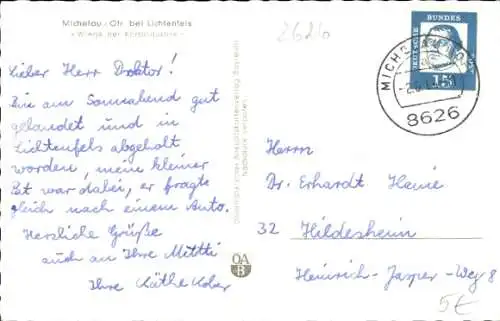 Michelau/Ofr. bei Lichtenfels
- Wiege der Korbindustrie -
2626
DEUTSCHE BUNDESPOST
15
MICHELAU
8626
Lieber Herr Doktor!
Bin am Sonnabend gut
gelandet und in
Lichtenfels abgeholt
worden, mein kleiner
war dabei, er fragte
gleich nach einem Auto.
Herzliche Grüße
auch an Ihre
Ihre Käthe Kober
Nachdruck verboten
OA
B
Herrn
Dr. Erhardt Heine
32 Hildesheim
Heinrich-Jasper-Weg 8
5€